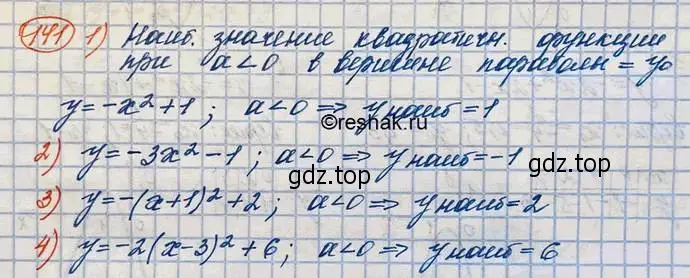 141 1) Наиб. значение квадратичн. функции
при a<0 в вершине параболы = y₀
y=-x²+1; a<0 ⇒ yнаиб=1
©reshak.ru
2) y=-3x²-1; a<0 ⇒ yнаиб=-1
gdz.top
gdz.top
3) y=-(x+1)²+2; a<0 ⇒ yнаиб=2
4) y=-2(x-3)²+6; a<0 ⇒ yнаиб=6